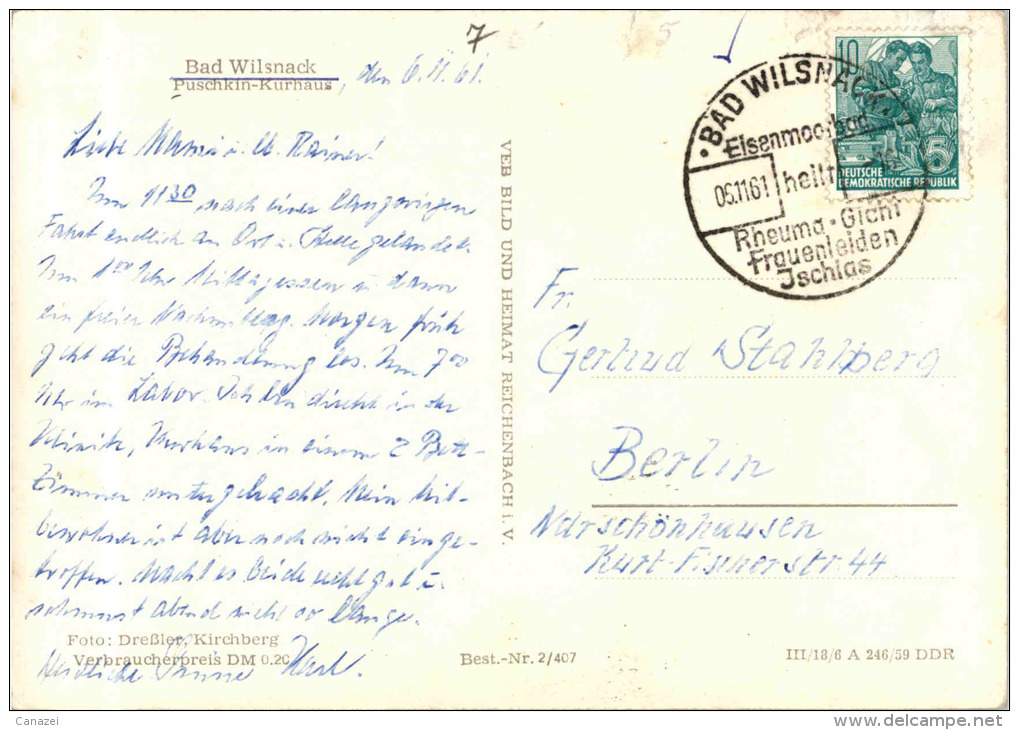 7
Bad Wilsnack
Puschkin-Kurhaus, den 6.11.61.
Liebe Mama u. Rainer!
Um 11 30 nach einer langwierigen
Fahrt endlich an Ort u. Stelle gelandet.
Um 1 00 Uhr Mittagessen u. dann
ein freier Nachmittag. Morgen früh
geht die Behandlung los. Um 7 00
Uhr im Labor. Ich bin direkt in der
Klinik, Kurhaus in einem 2 Bett-
Zimmer untergebracht. Mein Mit-
bewohner ist aber noch nicht einge-
troffen. Macht es Beide recht gut u.
abend nicht so lange.
Foto: Dreßler, Kirchberg
Verbraucherpreis DM 0.20
Herzliche Karl.
VEB BILD UND HEIMAT REICHENBACH i. V.
Best.-Nr. 2/407
10
5
DEUTSCHE
DEMOKRATISCHE REPUBLIK
• BAD WILSNACK •
Eisenmoorbad
05.11.61
heilt
Rheuma - Gicht
Frauenleiden
Jschias
Fr.
Gertrud Stahlberg
Berlin
Ndrschönhausen
Kurt-Fischerstr. 44
III/18/6 A 246/59 DDR
Canazei
http://www.delcampe.net